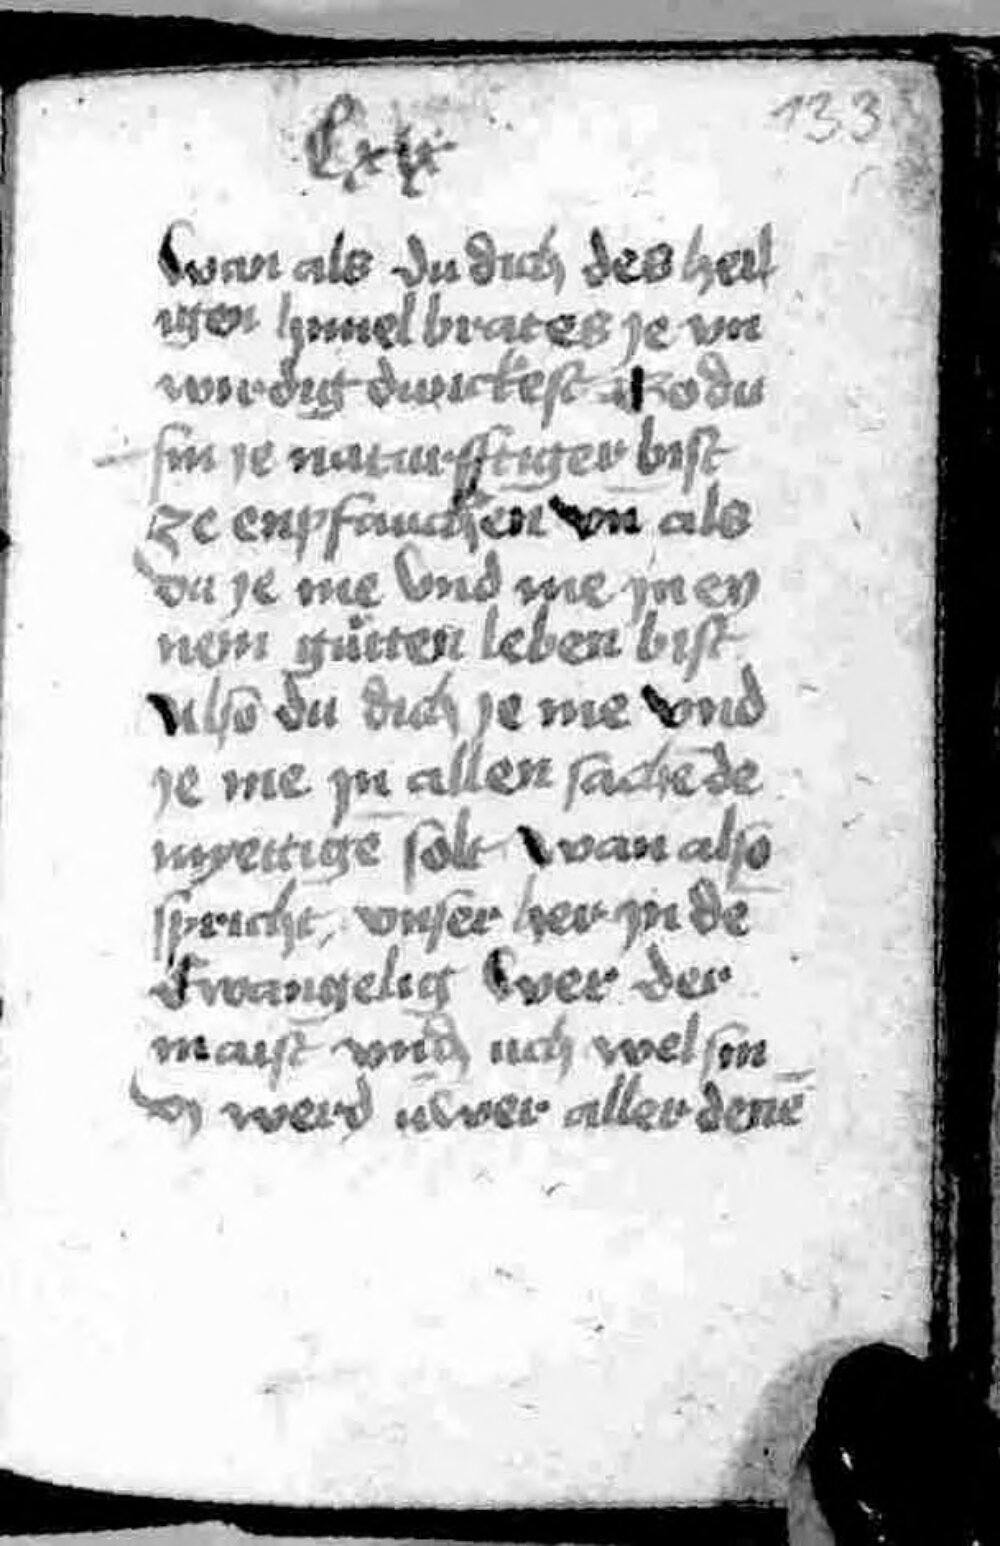 133
Cxx
Wan als du dich des heil
igen himel brates je vn
wirdig dunckest So du
sin je naturfftiger bist
ze enpfauchen Vn als
du je me Vnd me jn ey
nem gütten leben bist
Also du dich je me Vnd
je me jn allen sache de
myettige solt Wan also
spricht vnser her jn de
Ewangelig Wer der
maist vnd uch wel sin
Der werd uwer aller dene